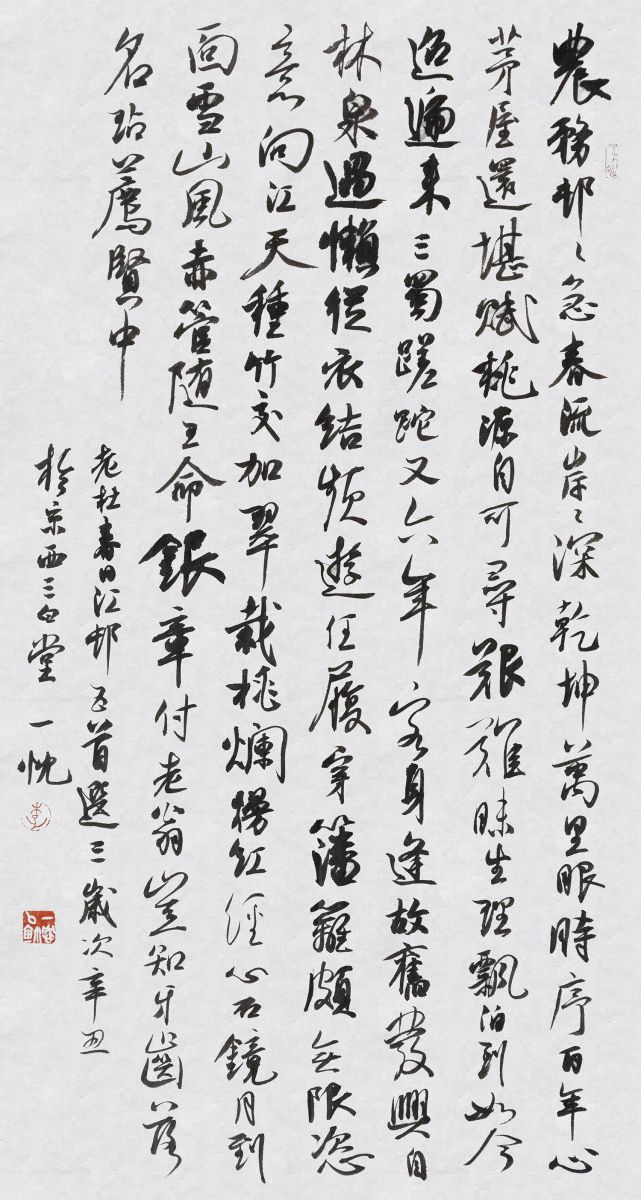 農務邨〻急春流岸〻深乾坤萬里眼時序百年心
茅屋還堪賦桃源自可尋艱難昧生理飄泊到如今
迢遞来三蜀蹉跎又六年客身逢故舊發興自
林泉過懶從衣結頻遊任履穿藩籬頗無限恣
意向江天種竹交加翠栽桃爛熳紅經心石鏡月到
面雪山風赤管随王命銀章付老翁豈知牙齒落
名玷薦賢中
老杜春日江邨五首選三歲次辛丑
於京西三白堂一忱
李